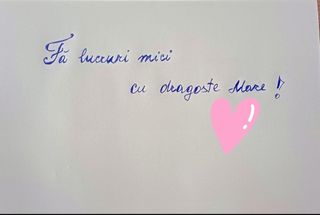 Fă lucruri mici
cu dragoste Mare!